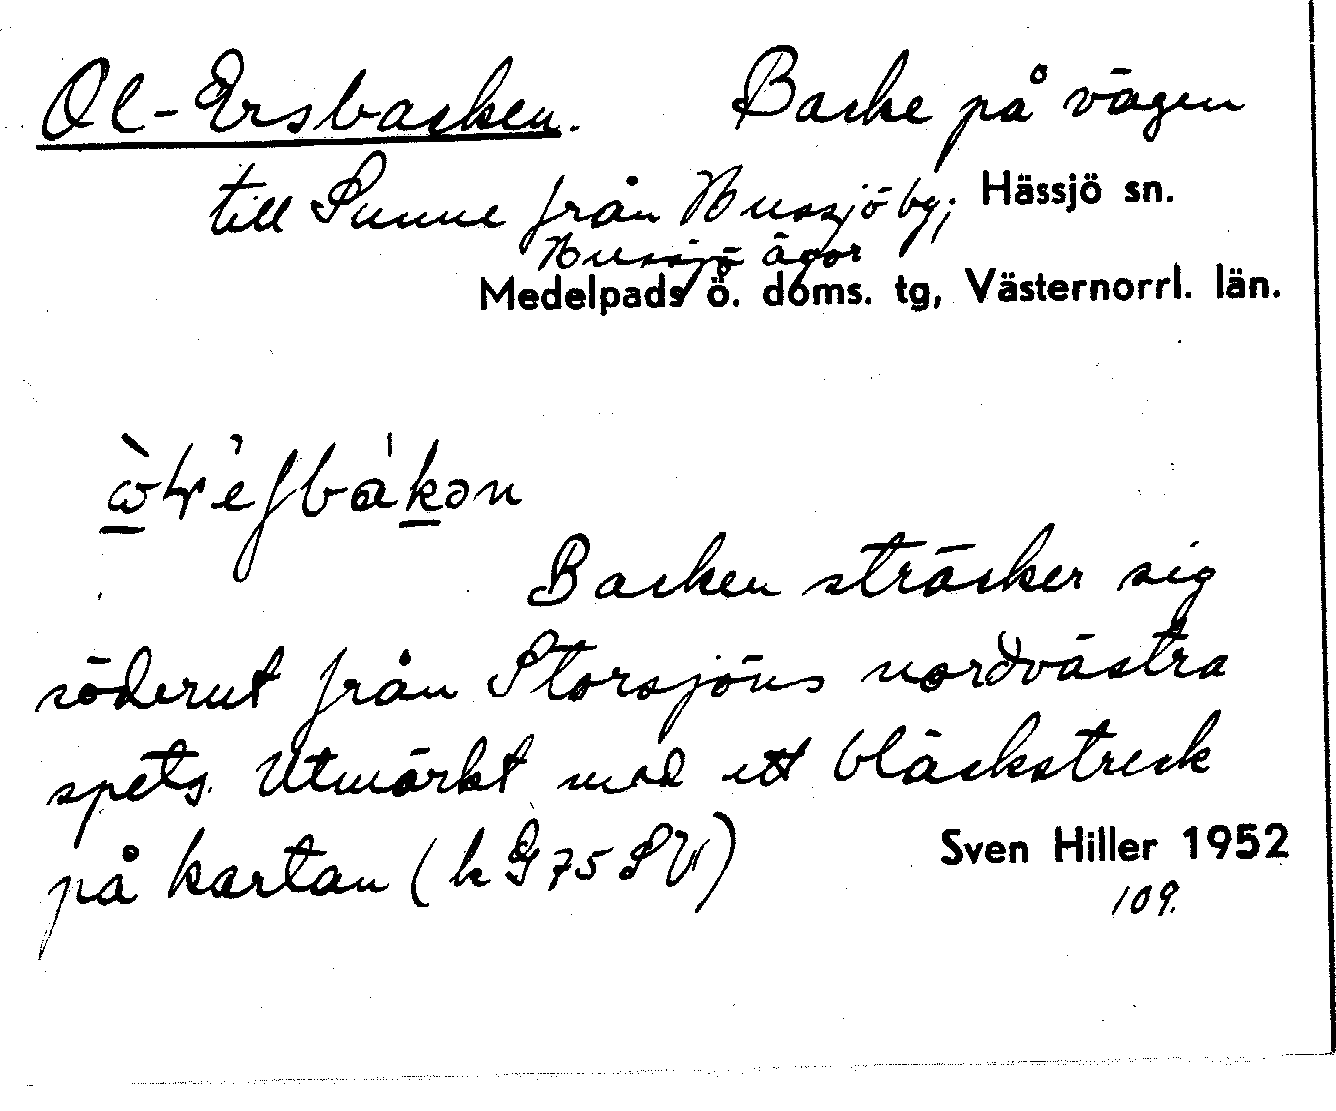 Ol-Ersbacken. Backe på vägen
till Sunne från Hussjö by; Hässjö sn.
Hussjö ägor
Medelpads ö. doms. tg, Västernorrl. län.
Backen sträcker sig
söderut från Storsjöns nordvästra
spets. Utmärkt med ett bläckstreck
på kartan (k G 75 SV)
Sven Hiller 1952
109.